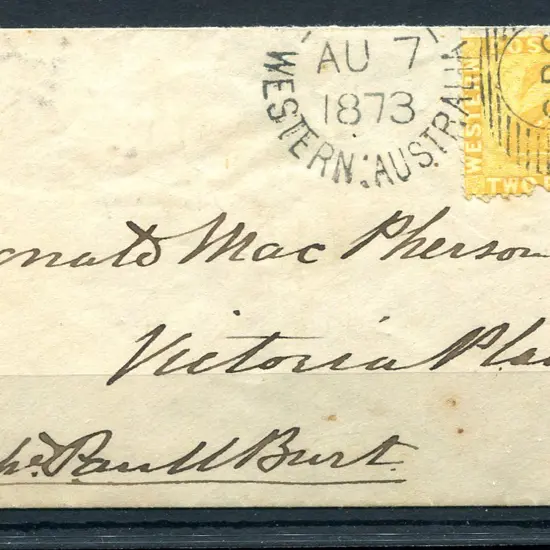 AU 7
1873
WESTERN AUSTRALIA
WEST
OS
TWO
onald Mac Pherson
Victoria Pla
Burt.